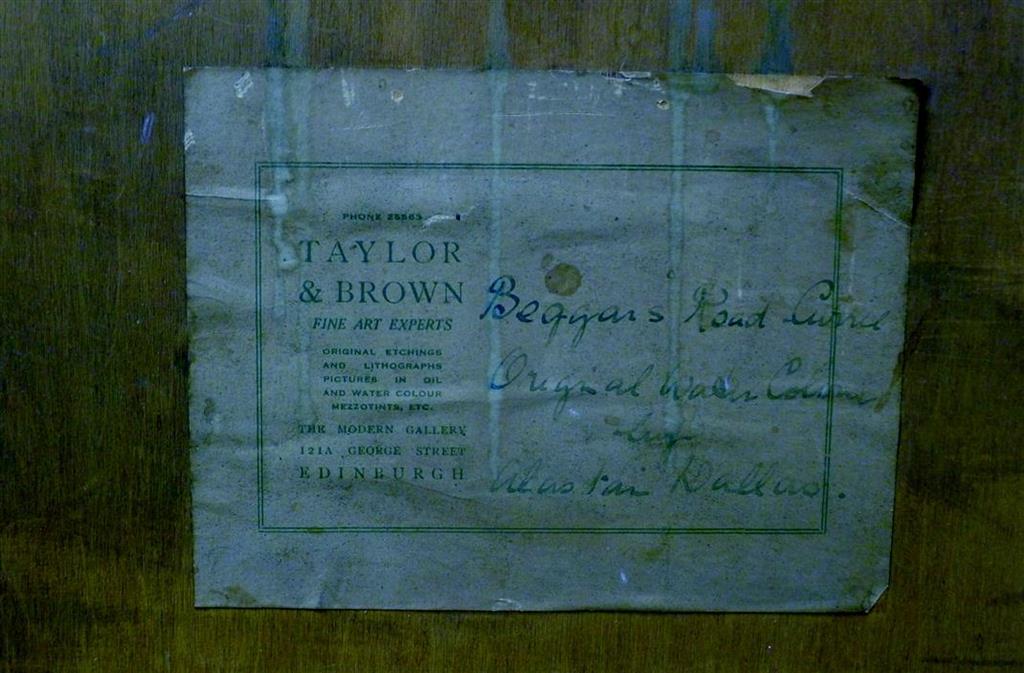 PHONE 25563
TAYLOR
& BROWN
FINE ART EXPERTS
ORIGINAL ETCHINGS
AND LITHOGRAPHS
PICTURES IN OIL
AND WATER COLOUR
MEZZOTINTS, ETC.
THE MODERN GALLERY
121A GEORGE STREET
EDINBURGH
Beggars Road Currie
Original Water Colour
by
Alastair Dallas.